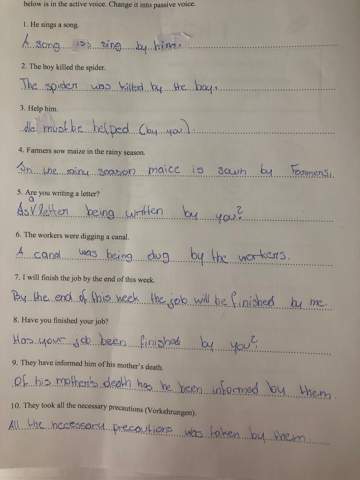 below is in the active voice. Change it into passive voice.
1. He sings a song.
A song is sing by him.
2. The boy killed the spider.
The spider was killed by the boy.
3. Help him.
He must be helped (by you)
4. Farmers sow maize in the rainy season.
In the rainy season maice is sawn by Farmers.
5. Are you writing a letter?
Is a letter being written by you?
6. The workers were digging a canal.
A canal was being dug by the workers.
7. I will finish the job by the end of this week.
By the end of this week the job will be finished by me
8. Have you finished your job?
Has your job been finished by you?
9. They have informed him of his mother's death.
Of his mother's death has he been informed by them.
10. They took all the necessary precautions (Vorkehrungen).
All the necessary precautions was taken by them